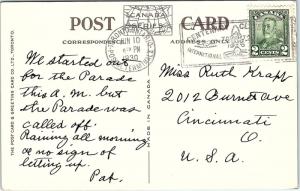 POST CARD
CANADA
CORRESPONDENCE
JUN 10
PM
1930
INTERNATIONAL
2 CENTS 2
We started out
for the Parade
this a.m. but
the Parade was
called off.
Raining all morning
& no sign of
letting up.
Pat.
Miss Ruth Krapp
2012 Burnet ave
Cincinnati
O.
U.S.A.
THE POST CARD & GREETING CARD CO. LTD., TORONTO.
MADE IN CANADA